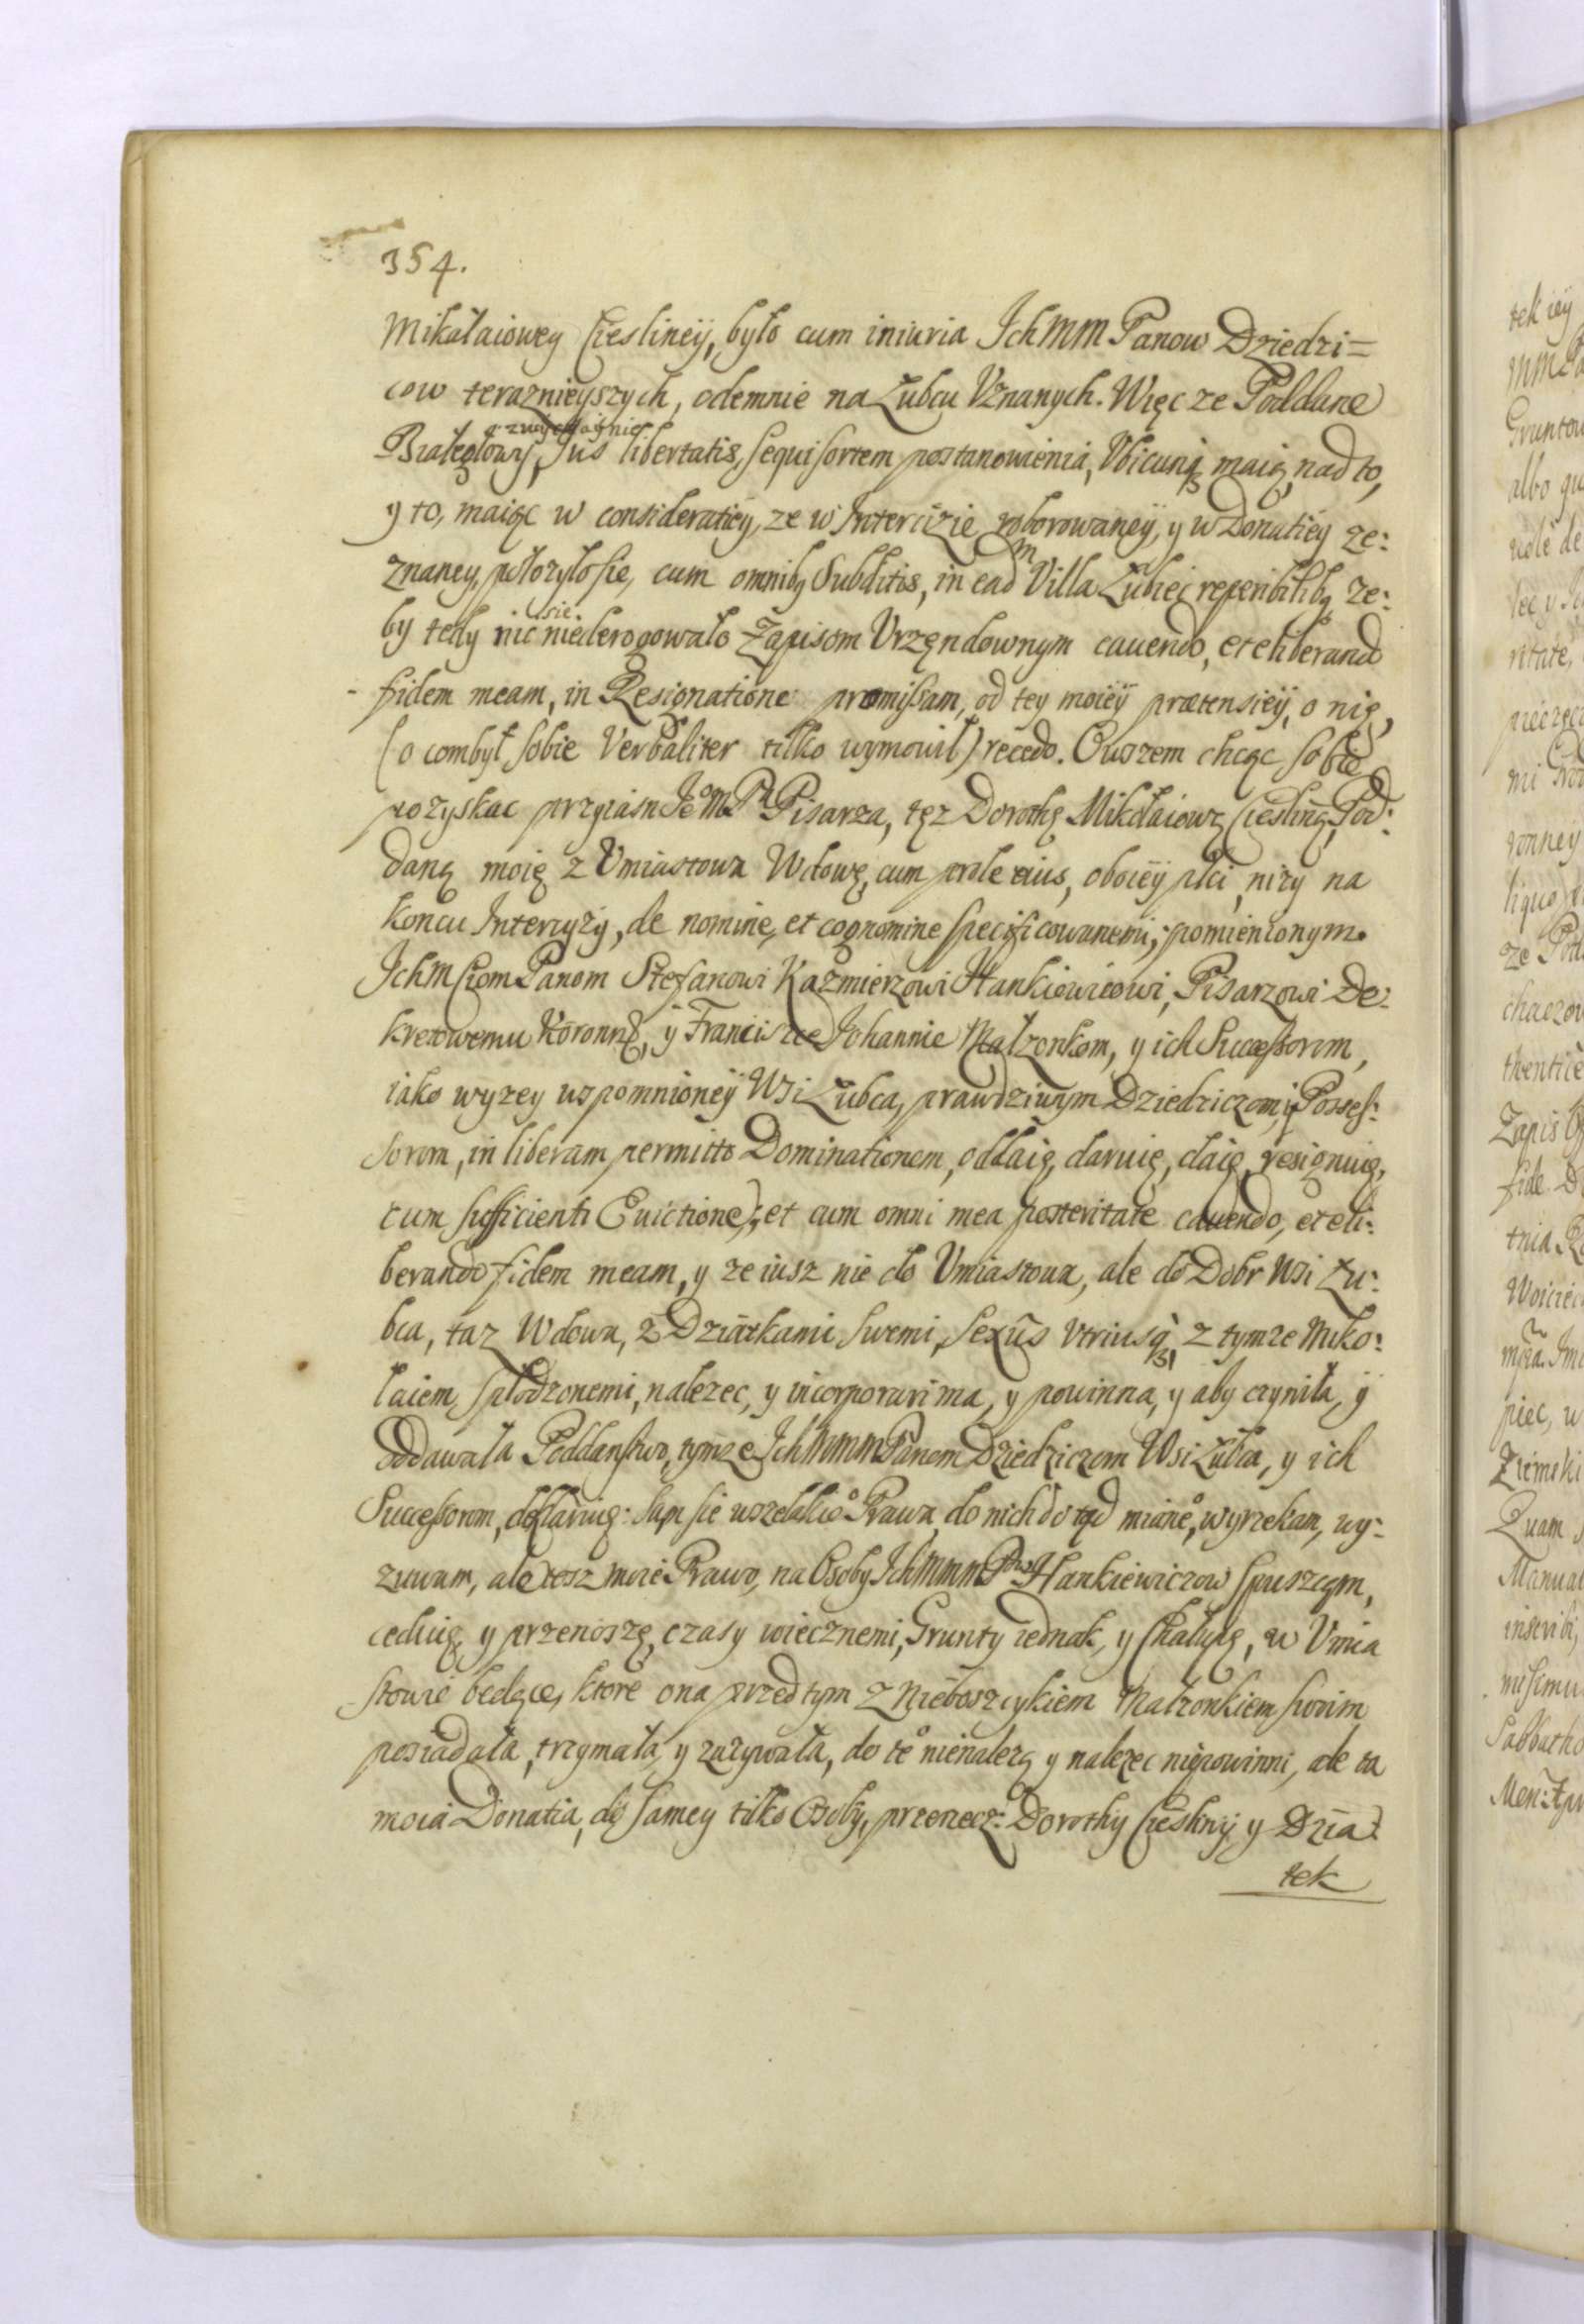 354.
Mikołaiowey Cieslineÿ, było cum iniuria Ich MM Panow Dziedzi=
cow teraznieyszych, odemnie na Łubcu Vznanych. Więc ze Poddane
zwyczaynie
Białegłowy, Jus libertatis, sequi sortem postanowienia, Vbicunq maią, nad to,
y to, maiąc w consideratiey, ze w Intercizie roborowaneÿ, y w Donatiey ze:
znaney, położyło sie, cum omnibq Subditis, in ead m Villa Łubiec reperibilibq ze:
by tedy nic sie niederogowało Zapisom Vrzęndownym cauendo, et eliberand
fidem meam, in Resignatione promissam, od tey moieÿ prætensieÿ, o nię,
(o com był sobie Verbaliter tilko wymowił) recedo. Owszem chcąc sobie
pozyskac przyiasn Je o M P n Pisarza, tęz Dorothę Mikołaiową Cieslinę, Pod:
daną moię z Vmiastowa Wdowę, cum prole eius, oboieÿ płci, nizy na
koncu Intercyzÿ, de nomine, et cognomine specificowanemi, pomienionym.
Ich M Ciom Panom Stefanowi Kazmierzowi Hankiewicowi, Pisarzowi De:
kretowemu Koronn, ÿ Franciszce Johannie Małzonkom, y ich Successorom,
iako wyzey wspomnioneÿ Wsi Łubca, prawdziwym Dziedziczom, y Posses:
sorom, in liberam permitto Dominationem, oddaię, daruię, daię, resignuię,
cum sufficienti Euictione, et cum omni mea posteritate cauendo, et eli:
berando fidem meam, y ze iusz nie do Vmiastowa, ale do Dobr Wsi Łu:
bca, taz Wdowa, z Dziatkami swemi, sexûs vtriusq, z tymze Miko:
łaiem, spłodzonemi, nalezec, y incorporari ma, y powinna, y aby czyniła, ÿ
oddawała Poddanstwo, tymze Ich MMM Panom Dziedziczom Wsi Łubca, y ich
Successorom, deklaruię: sam sie wszelakie o Prawa, do nich do tąd miane o, wyrzekam, wy:
zuwam, ale tesz moie Prawo, na Osoby Ich MMM P ow Hankiewiczow spuszcęm,
ceduię, y przenoszę, czasy wiecznemi, Grunty iednak, y Chałupę, w Vmia
stowie będące, ktore ona przed tym z Nieboszcykiem Małzonkiem swoim
posiadała, trzymała, y zazywała, do te o nienalezą y nalezec niepowinni, ale ta
moia Donatia, do samey tilko Osoby, przerzecz: Dorothy Cieslinÿ y Dzia:
tek